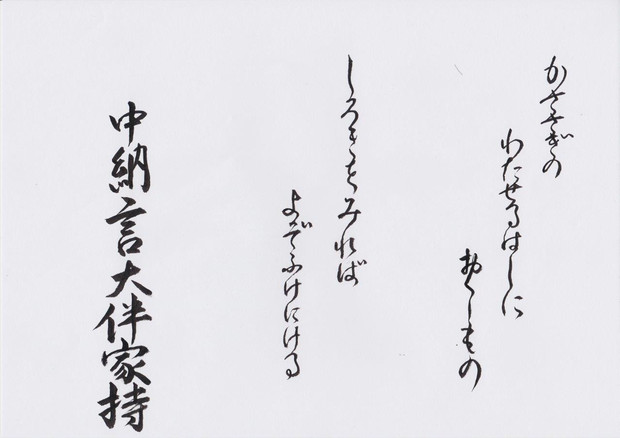 かささぎの
わたせるはしに
おくしもの
しろきをみれば
よぞふけにける
中納言大伴家持